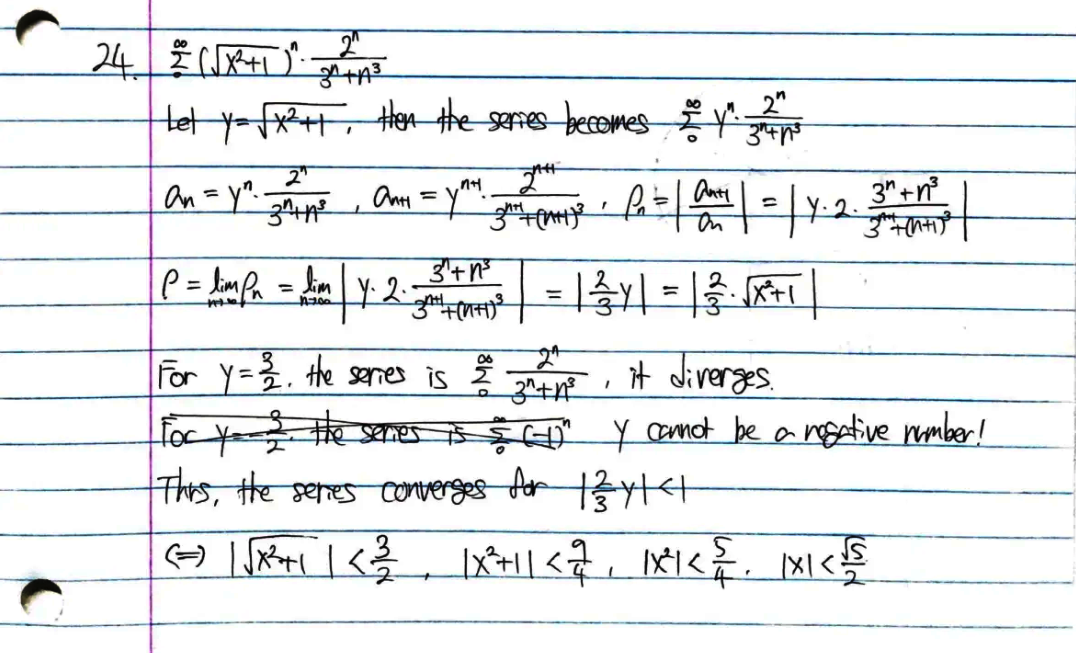 24. ∑₀^∞ (√(x²+1))ⁿ · 2ⁿ/(3ⁿ+n³)
Let y=√(x²+1), then the series becomes ∑₀^∞ yⁿ · 2ⁿ/(3ⁿ+n³)
aₙ = yⁿ · 2ⁿ/(3ⁿ+n³), aₙ₊₁ = yⁿ⁺¹ · 2ⁿ⁺¹/(3ⁿ⁺¹+(n+1)³), ρₙ = |aₙ₊₁/aₙ| = |y·2·(3ⁿ+n³)/(3ⁿ⁺¹+(n+1)³)|
ρ = lim_{n→∞} ρₙ = lim_{n→∞} |y·2·(3ⁿ+n³)/(3ⁿ⁺¹+(n+1)³)| = |2/3 y| = |2/3 · √(x²+1)|
For y=3/2, the series is ∑₀^∞ 2ⁿ/(3ⁿ+n³), it diverges.
For y=-3/2, the series is ∑₀^∞ (-1)ⁿ y cannot be a negative number!
Thus, the series converges for |2/3 y|<1
⟺ |√(x²+1)| < 3/2, |x²+1| < 9/4, |x²| < 5/4, |x| < √5/2